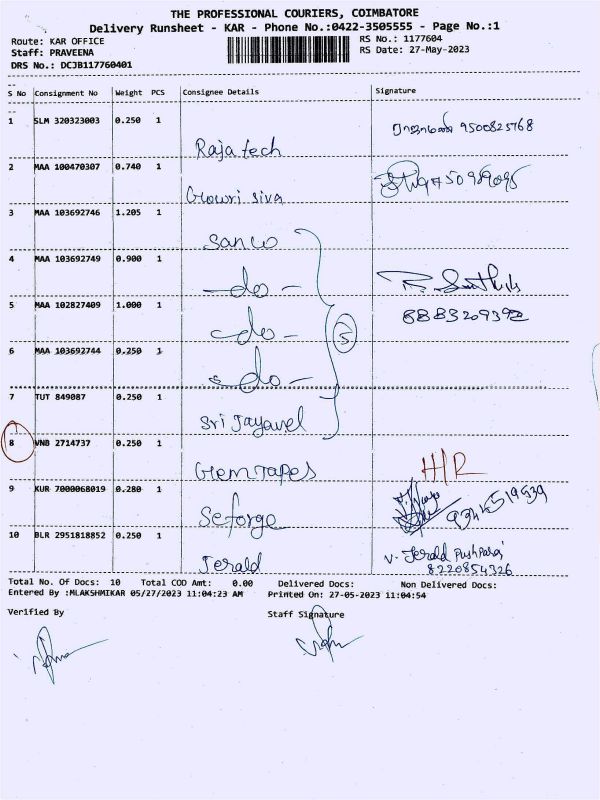 THE PROFESSIONAL COURIERS, COIMBATORE
Delivery Runsheet - KAR - Phone No.:0422-3505555 - Page No.:1
Route: KAR OFFICE
RS No.: 1177604
Staff: PRAVEENA
RS Date: 27-May-2023
DRS No.: DCJB117760401
S No Consignment No Weight PCS Consignee Details Signature
1 SLM 320323003 0.250 1
ராஜாமணி 9500825768
Raja tech
2 MAA 100470307 0.740 1
Gowri siva
3 MAA 103692746 1.205 1
Sanco
4 MAA 103692749 0.900 1
- do -
5 MAA 102827409 1.000 1
8883209392
- do -
5
6 MAA 103692744 0.250 1
- do -
7 TUT 849087 0.250 1
Sri Jayavel
8 VNB 2714737 0.250 1
H/R
Gem Tapes
9 KUR 7000068019 0.280 1
Seforge
10 BLR 2951818852 0.250 1
V. Jerald Pushparaj
Jerald
8220854326
Total No. Of Docs: 10 Total COD Amt: 0.00 Delivered Docs: Non Delivered Docs:
Entered By :MLAKSHMIKAR 05/27/2023 11:04:23 AM Printed On: 27-05-2023 11:04:54
Verified By Staff Signature